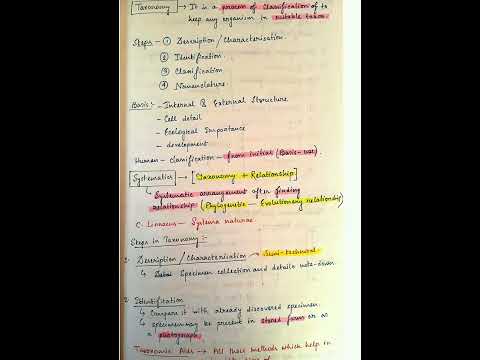 Taxonomy → It is a process of Classification of to
keep any organism in suitable taxon.
Steps - ① Description / Characterisation.
② Identification.
③ Classification
④ Nomenclature.
Basis:- - Internal & External Structure
- Cell detail
- Ecological Importance
- development
Human - classification - from initial (Basis - use).
Systematics → [Taxonomy + Relationship]
↳ Systematic arrangement after finding
relationship (Phylogenetic - Evolutionary relationship)
C. Linnaeus - Systema naturae
Steps in Taxonomy:-
Description / Characterisation → Semi-technical
↳ Specimen collection and details note-down.
2 Identification
↳ Compare it with already discovered specimen.
↳ specimen may be present in stored form or as
a photograph.
Taxonomic Aids → All those methods which help in